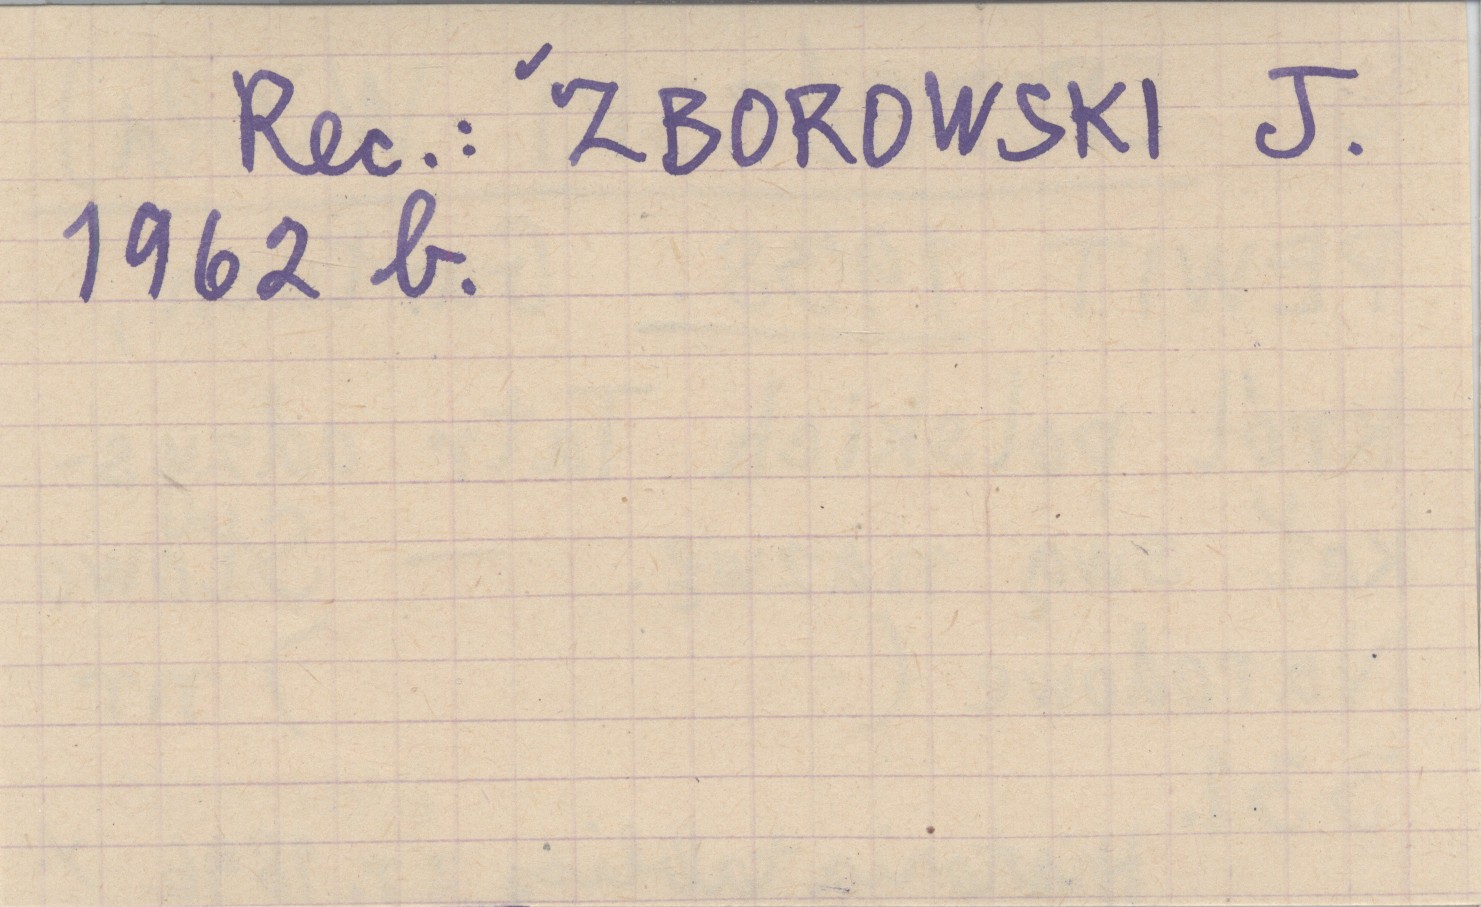 Rec.: ZBOROWSKI J.
1962 b.